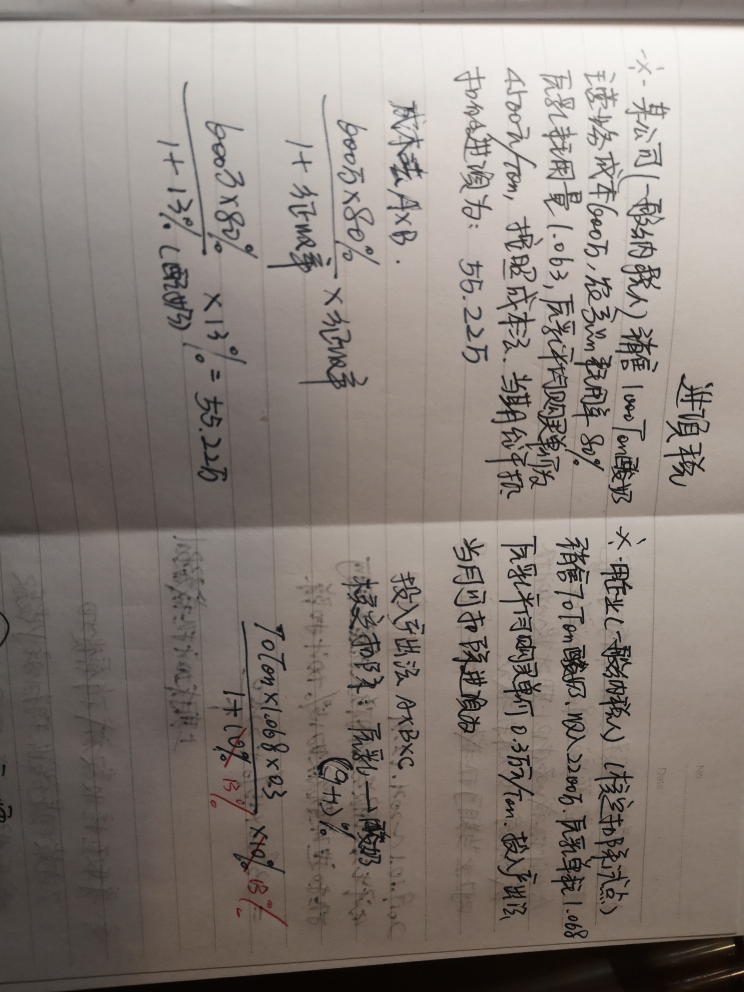 进项税
·※· 某公司(一般纳税人)销售1000Ton酸奶
主营业务成本600万,农产品耗用率80%
原乳耗用量1.063,原乳平均购买单价为
4500元/Ton,按照成本法、当期允许抵
扣的进项为: 55.22万
成本法 A×B.
600万×80%
1+征收率
×征收率
600万×80%
1+13%(酸奶)
×13%=55.22万
※·甲企业(一般纳税人)(核定扣除试点)
销售70Ton酸奶.收入2200万.原乳单耗1.068
原乳平均购买单价0.3万/Ton.投入产出法
当月可扣除进项为
投入产出法 A×B×C
核定扣除:原乳→酸奶
(9+1)%
70Ton×1.068×0.3
1+10% 13%
×10% 13%